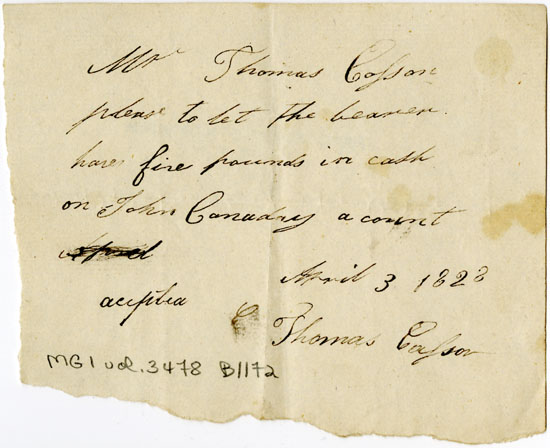 Mr Thomas Cosson
please to let the bearer
have five pounds in cash
on John Canadey acount
April 3 1828
aceptea
Thomas Cosson
MG1 vol. 3478 B1172